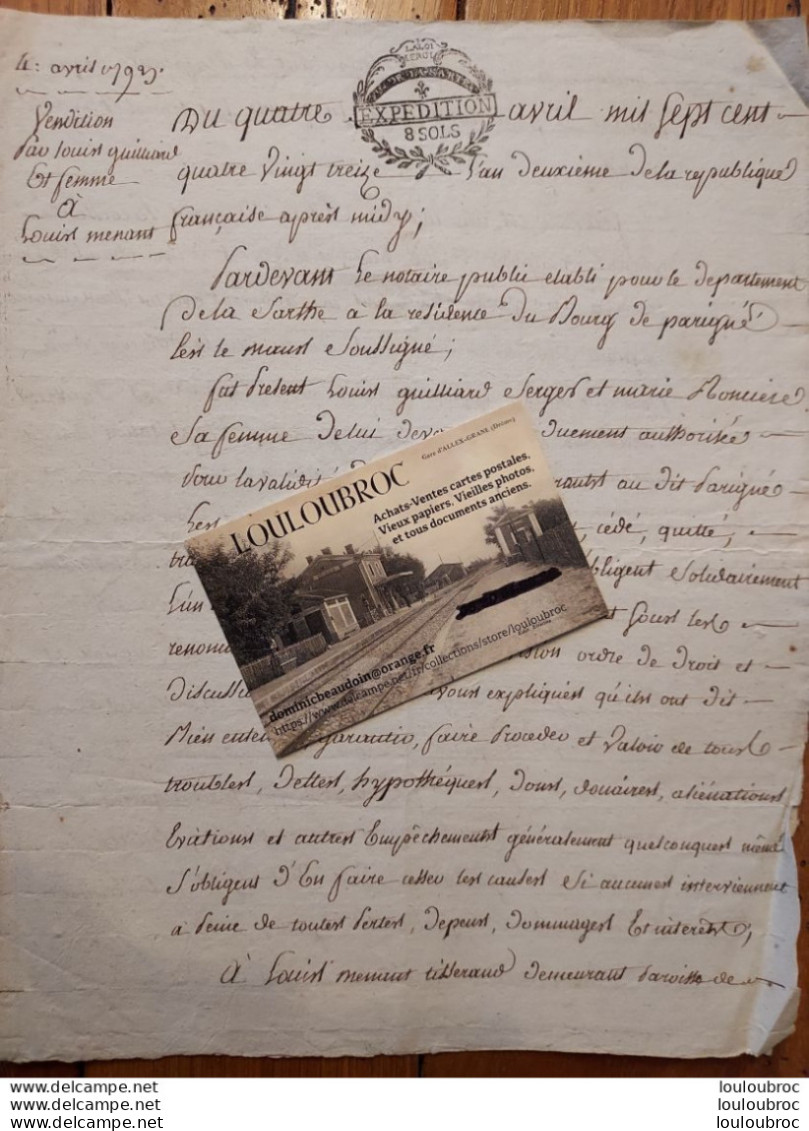 4: avril 1793.
Vendition
par louis guilliard
Et femme
à
Louis menant
LA LOI
LE ROI
DEP. DE LA SARTHE
EXPEDITION
8 SOLS
Du quatre avril mil Sept cent
quatre vingt treize L'an deuxième de la republique
française après midy;
Pardevant Le notaire public etabli pour le departement
De la Sarthe à la residence Du Bourg de parigné
Les le mans Soussigné;
fut Present Louis guilliard Serger et marie
Sa femme De lui duement authorisée
Pour la validité au dit Parigné
cédé, quitté,
obligent Solidairement
L'un
renon Sous les
Division ordre de Droit et
Discussion Nous expliqués qu'ils ont dit
Bien entendre garantir, faire Proceder et Valoir de tous
troubles, Dettes, hypothéques, Dons, douaires, aliénations
Evictions et autres Empêchements généralement quelconques même
S'obligent D'En faire cesser les causes Si aucunes interviennent
à Peine de toutes Pertes, Depens, Dommages Et interêts;
À Louis menant tisserand Demeurant Paroisse de
Gare d'ALLEX-GRANE (Drôme)
LOULOUBROC
Achats-Ventes cartes postales,
Vieux papiers, Vieilles photos,
et tous documents anciens.
dominicbeaudoin@orange.fr
https://www.delcampe.net/fr/collections/store/louloubroc
WWW.DELCAMPE.NET louloubroc
WWW.DELCAMPE.NET louloubroc
WWW.DELCAMPE.NET louloubroc